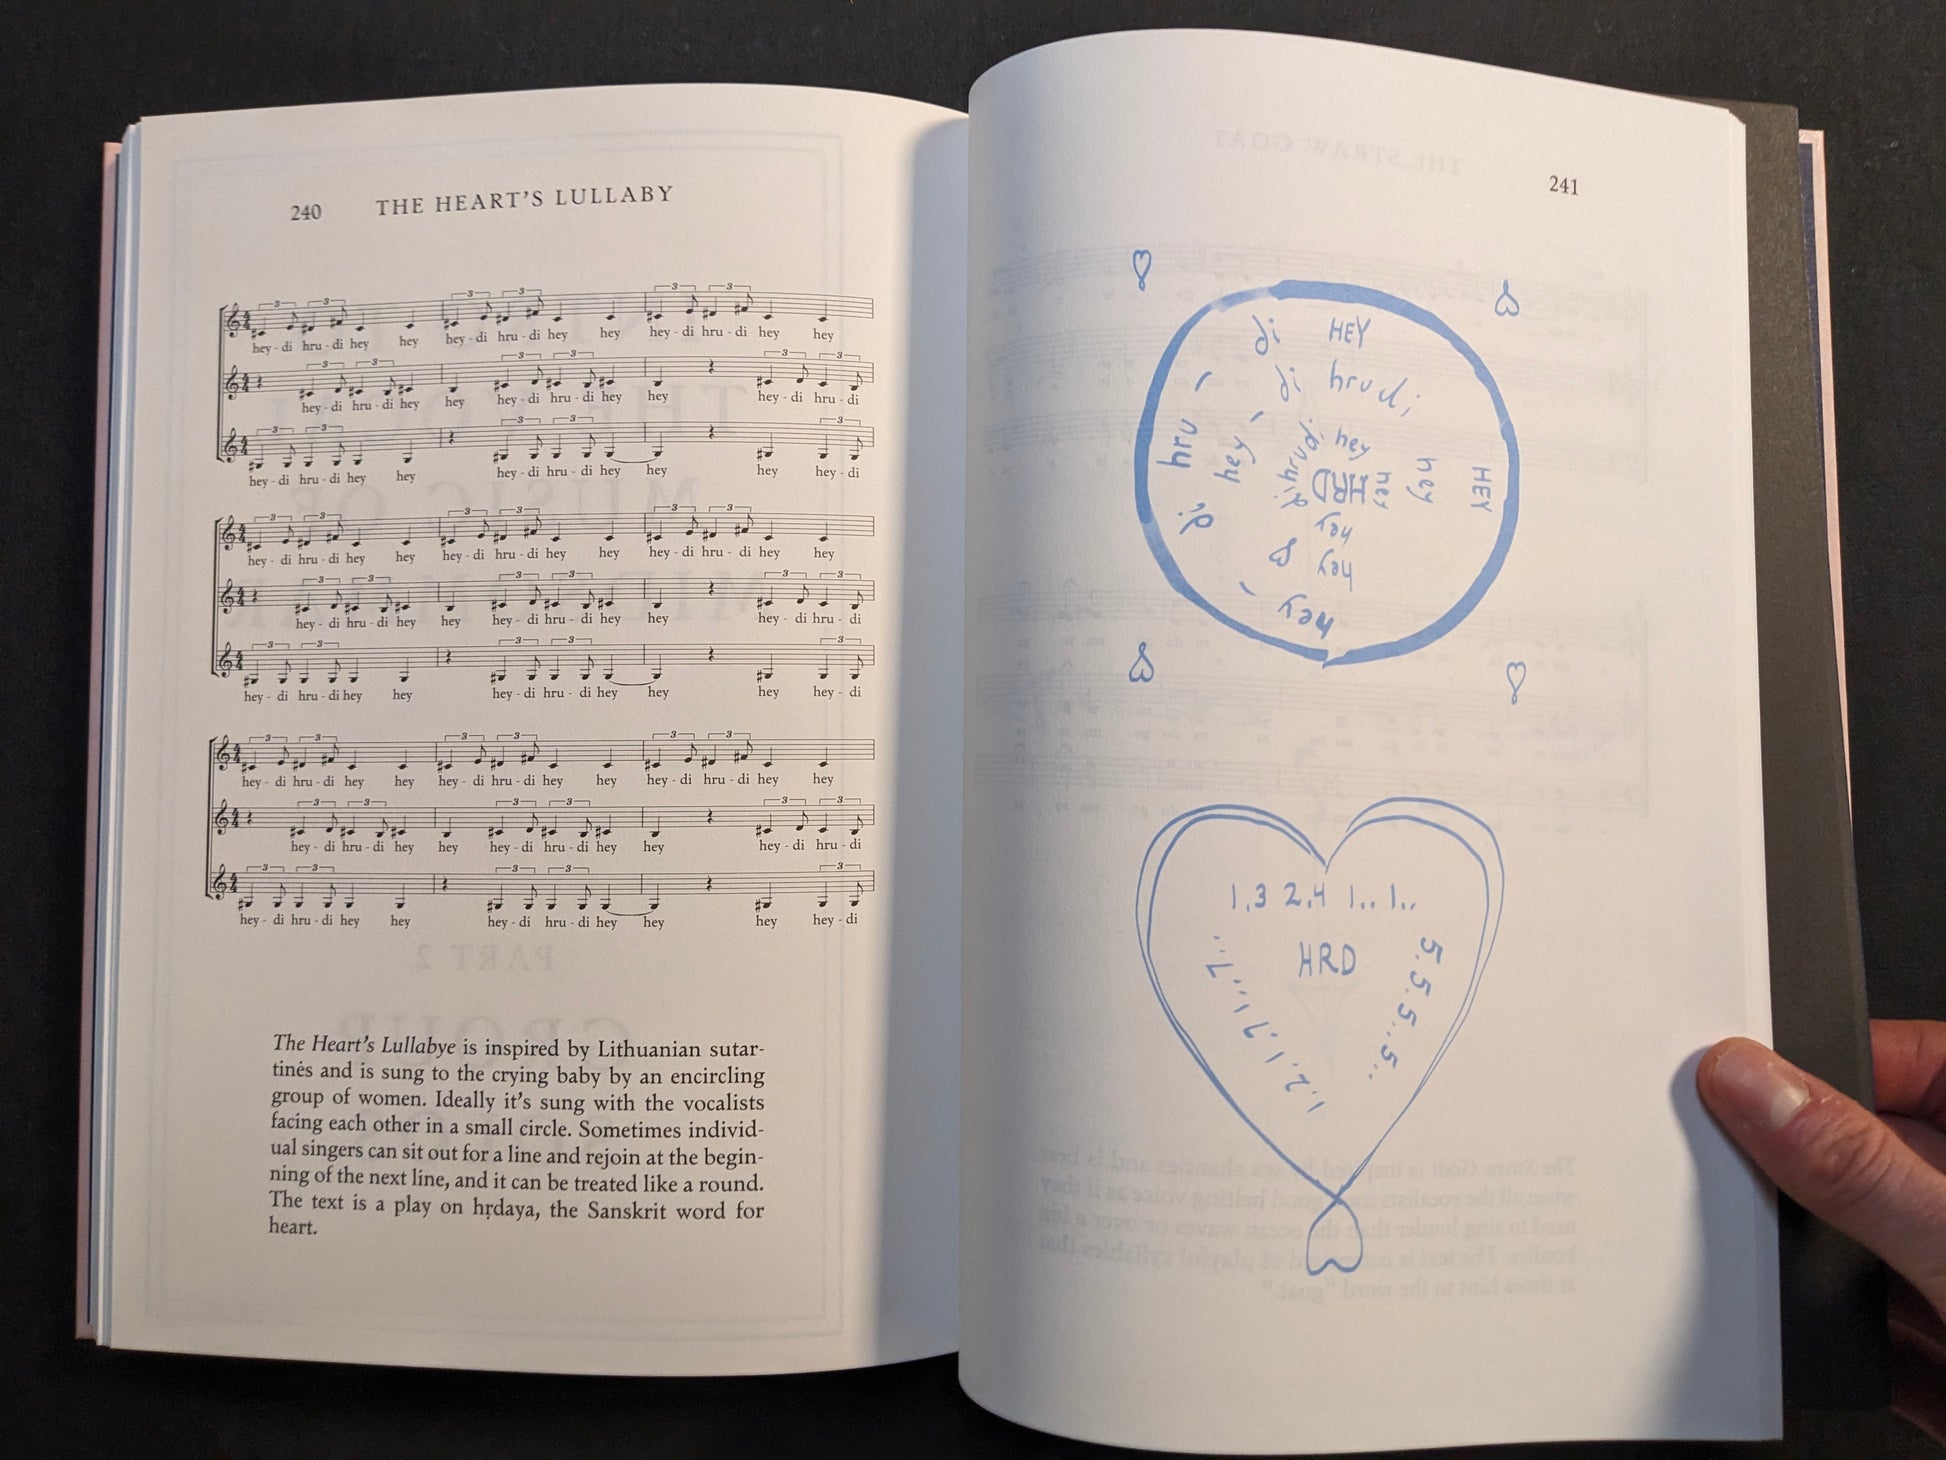 240 THE HEART'S LULLABY
3 3 3 3 3 3
hey - di hru - di hey hey hey - di hru - di hey hey hey - di hru - di hey hey
3 3 3 3 3 3
hey - di hru - di hey hey hey - di hru - di hey hey hey - di hru - di
3 3 3 3 3
hey - di hru - di hey hey hey - di hru - di hey hey hey hey - di
3 3 3 3 3 3
hey - di hru - di hey hey hey - di hru - di hey hey hey - di hru - di hey hey
3 3 3 3 3 3
hey - di hru - di hey hey hey - di hru - di hey hey hey - di hru - di
3 3 3 3 3
hey - di hru - di hey hey hey - di hru - di hey hey hey hey - di
3 3 3 3 3 3
hey - di hru - di hey hey hey - di hru - di hey hey hey - di hru - di hey hey
3 3 3 3 3 3
hey - di hru - di hey hey hey - di hru - di hey hey hey - di hru - di
3 3 3 3 3
hey - di hru - di hey hey hey - di hru - di hey hey hey hey - di
The Heart's Lullabye is inspired by Lithuanian sutar-
tinės and is sung to the crying baby by an encircling
group of women. Ideally it's sung with the vocalists
facing each other in a small circle. Sometimes individ-
ual singers can sit out for a line and rejoin at the begin-
ning of the next line, and it can be treated like a round.
The text is a play on hṛdaya, the Sanskrit word for
heart.
241
hey - di hru - di HEY HEY
hey - di hru di hey hey
di hru di hey hey hey
HRD
1.3 2.4 1.. 1..
HRD
5.5.5..5..
1.2.1.7 1...7...